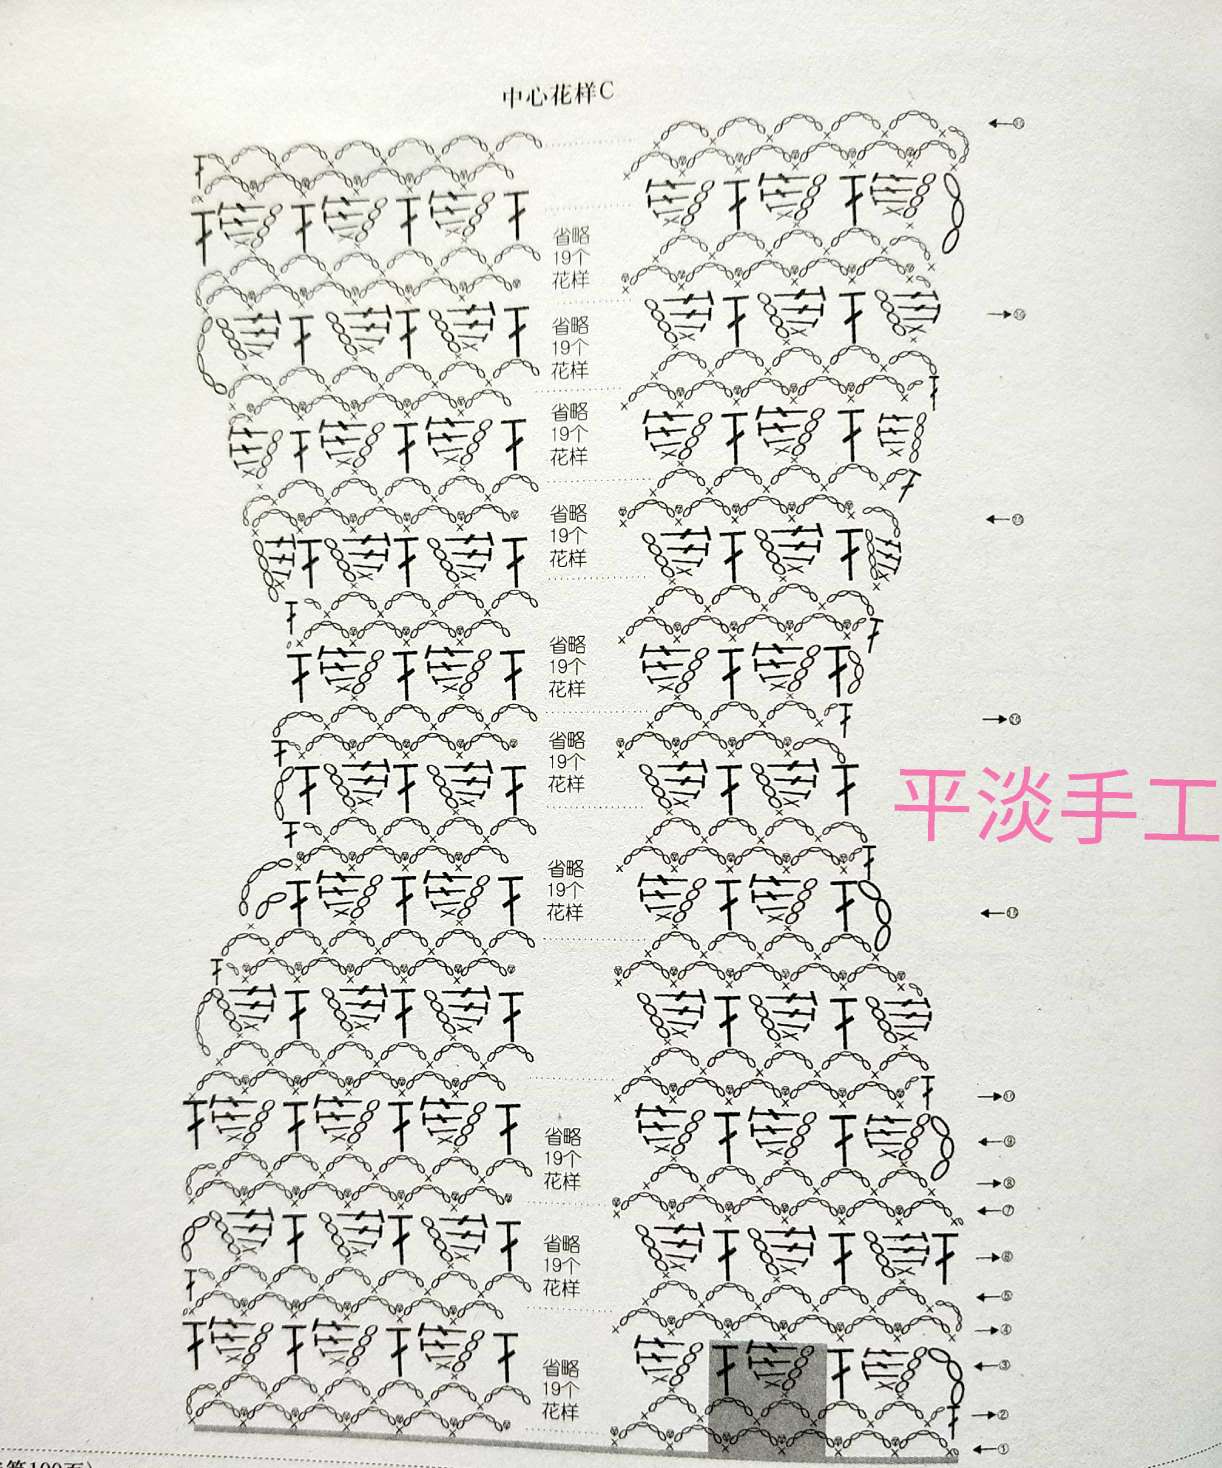 中心花样C
省略
19个
花样
省略
19个
花样
省略
19个
花样
省略
19个
花样
省略
19个
花样
省略
19个
花样
平淡手工
省略
19个
花样
省略
19个
花样
⑨
⑧
⑦
省略
19个
花样
⑥
⑤
④
省略
19个
花样
③
②
①
第100页)